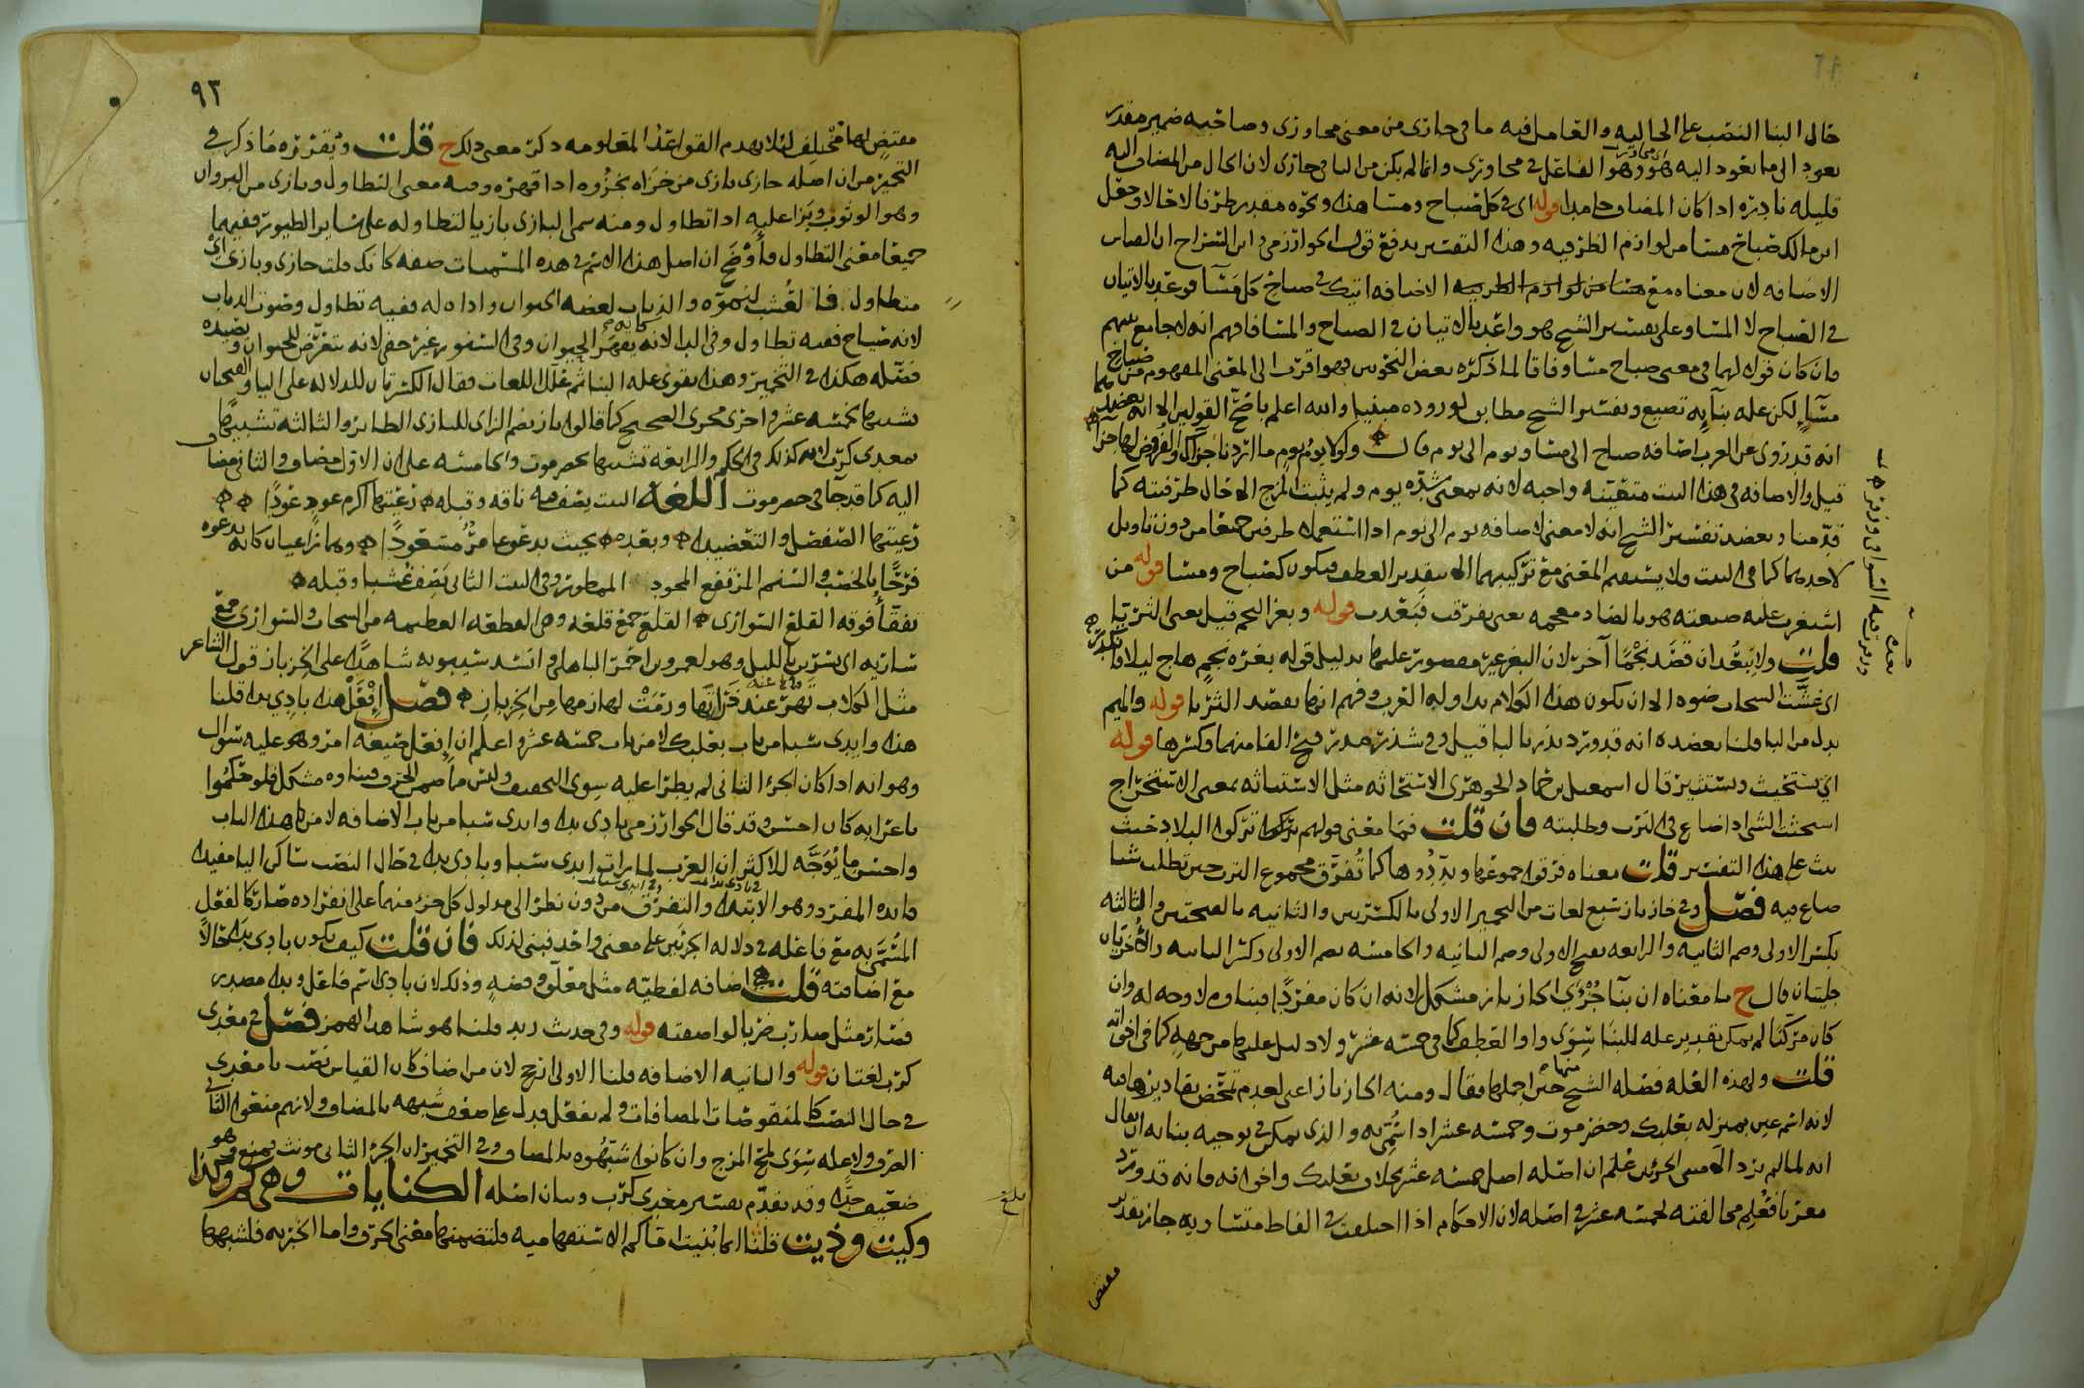 حال البنا النصب على الحاليه والعامل فيه ما في جازى من معنى مجاوزى وصاحبه ضمير مقدر
يعود الى ما يعود اليه هو وهو الفاعل في مجاوزى وانما لم يكن من اليا في جازى لان الحال من المضاف اليه
قليله نادره اذا كان المضاف جامدا قوله اى في كل صباح ومساء هذا ونحوه مقدر ظرفا لا حالا وجعل
ابن مالك صباح مسا من لوازم الظرفيه وهذا التفسير يدفع قول الخوارزمى
الاضافه لان معناه مع الاضافه اتيتك في صباح كل مسا
في الصباح لا المسا وعلى تفسير الشيخ هو واعد بالاتيان في الصباح والمسا فافهم انه لا جامع بينهم
وان كان قوله لهما في معنى صباح مسا وفاقا لما ذكره بعض النحويين فهو اقرب الى المعنى المفهوم من صباح
مساء لكن عله بنايه تضيع وتفسير الشيخ مطابق لوروده مبنيا والله اعلم باصح القولين الا انه
انه قد روى عن العرب اضافه صباح الى مسا ويوم الى يوم قال ولولا يوم يوم ما اردنا جزاك والقروض لها جزاء
قيل والاضافه في هذا البيت متعينه واجبه لانه بمعنى شده يوم ولم يثبت المزج الا حال ظرفيته كما
قدمنا ويعضد تفسير الشيخ انه لا معنى لاضافه يوم الى يوم اذا استعملا ظرفين جميعا من دون تاويل
لاحدهما كما في البيت ولا يستقيم المعنى مع تركيبهما الا بتقدير العطف فيكون كصباح ومسا قوله من
اشغرت عليه ضيعته هو بالضاد معجمه يعنى تفرقت فبعدت قوله وبغر النجم قيل يعنى الثريا
قلت ولا يبعد ان قصد نجما آخر لان البغر غير مقصور عليها بدليل قوله بغرة نجم هاج ليلا
اى غشت السحاب ضوه الا ان يكون هذا الكلام تداوله العرب وفهم انها بقصد الثريا قوله والميم
بدل من البا قلنا يعضده انه قد ورد بذر بالبا قيل وفي شذر مذر فتح الفا منهما وكسرها قوله
اى يستحيث ويستثير قال اسمعيل بن حماد الجوهرى الاستحاثه مثل الاستباثه بمعنى الاستخراج
استحثت الشى اذا ضاع في الترب وطلبته فان قلت فما معنى قولهم تركوا البلاد حيث
بيث على هذا التفسير قلت معناه فرقوا جموعها وبددوها كما تفرق مجموع الترب حين تطلب شيا
ضاع فيه فصل وفي خازباز سبع لغات من التخمير الاولى بالكسرتين والثانيه بالفتحتين والثالثه
بكسر الاولى وضم الثانيه والرابعه بفتح الاولى وضم الثانيه والخامسه بضم الاولى وكسر الثانيه والاخريان
جليتان قال ح ما معناه ان بنا جزءى الخازباز مشكل لانه ان كان مفردا فبناوه لا وجه له وان
كان مركبا لم يمكن تقدير عله للبنا سوى واو العطف كما في خمسه عشر ولا دليل عليها من جهه كما في اخواته
قلت ولهذه العله فصله الشيخ حين اجملها فقال ومنه الخازباز اعنى لعدم تمحض تقاديرها فيه
لانه اسم عين بمنزله بعلبك وحضرموت وخمسه عشر اذا سمى به والذى يمكن في توجيه بنايه ان يقال
انه لما لم يرد الا مبنى الجزئين علم ان اصله اصل خمسه عشر بخلاف بعلبك واخواته فانه قد ورد
معربا فعلم مخالفته لخمسه عشر في اصله لان الاحكام اذا اختلفت في الفاظ متساويه جاز تقدير
مقتض
٩٣
مقتض لها مختلف لئلا يهدم القواعد المعلومه ذكر معنى ذلك ح قلت وتقريره ما ذكر في
التخمير من ان اصله خازى بازى من خزاه يخزوه اذا قهره وفيه معنى التطاول وبازى من البزوان
وهو الوثوب وبزا عليه اذا تطاول ومنه سمى البازى بازيا لتطاوله على ساير الطيور ففيهما
جميعا معنى التطاول فاوضح ان اصل هذا الاسم في هذه المسميات صفه كانك قلت خازى وبازى اى
متطاول فالعشب لنموه والذباب لعضه الحيوان واذاه له ففيه تطاول وصوت الذباب
لانه صياح ففيه تطاول وفي الدا لانه يقهر الحيوان وفي السنور غير خفى لانه يتعرض للحيوان ويصيده
فصله هكذا في التخمير وهذا يقوى عله البنا ثم علل اللغات فقال الكسرتان للدلاله على اليا والفتحتان
تشبيها بخمسه عشر واجرى مجرى الصحيح كما قالوا باز بضم الزاى للبازى الطاير والثالثه تشبيها
بمعدى كرب لانه كذلك في الحكم والرابعه تشبيها بحضرموت والخامسه على ان الاول مضاف والثانى مضاف
اليه كما قد جا في حضرموت اللغه البيت يصف فيه ناقه وقبله رعيتها اكرم عود عودا
رعيتها الصفصل والتعضيدا وبعده بحيث يدعو عامر مسعودا وهما راعيان كانه يدعوه
فرحا بالخصب والسنم المرتفع المجود الممطور وفي البيت الثانى يصف عشبا وقبله
تفقأ فوقه القلع السوارى القلع جمع قلعه وهى القطعه العظيمه من السحاب والسوارى جمع
ساريه اى تسرى بالليل وهو لعمرو بن احمر الباهلى وانشد سيبويه شاهدا على الخزباز قول الشاعر
مثل الكلاب تهر عند خزابها ورمت لهازمها من الخزباز فصل افعل هذا بادى بدا قلنا
هذا وايدى سبا من باب بعلبك لا من باب خمسه عشر واعلم ان افعل صيغه امر وهو عليه سوال
وهو انه اذا كان الجزء الثانى لم يطرا عليه سوى التخفيف وليس مما ضمن الحرف فبناوه مشكل فلو حكموا
باعرابه كان احسن وقد قال الخوارزمى بادى بدا وايدى سبا من باب الاضافه لا من هذا الباب
واحسن ما يوجه للاكثر ان العرب لما رات ايدى سبا وبادى بدا في حال النصب ساكن اليا مفيدا
فايده المفرد وهو الابتدا والتفرق من دون نظر الى مدلول كل جزء منهما على انفراده صارتا كالفعل
المسمى به مع فاعله في دلاله الجزئين على معنى واحد فبنى لذلك فان قلت كيف يكون بادى بدا حالا
مع اضافته قلت اضافه لفظيه مثل معلق وفضه وذلك لان بادى اسم فاعل وبدا مصدر
فصار مثل ضارب ضربا لو اضفته قوله وفي حديث زيد قلنا هو شاهد الهمز فصل في معدى
كرب لغتان قوله والثانيه الاضافه قلنا الاولى ارجح لان من اضاف كان القياس نصب يا معدى
في حال النصب كالمنقوصات المضافات ولم يفعل فدل على ضعف شبهه بالمضاف ولانهم منعوا الثانى
الصرف ولا عله سوى لمح المزج وان كانوا شبهوه بالمضاف وفي التخمير ان الجزء الثانى مونث فيمنع وهو
ضعيف جدا وقد تقدم تفسير معدى كرب وبيان اصله الكنايات وهى كم وكذا
وكيت وذيت قلنا انما بنيت اما كم الاستفهاميه فلتضمنها معنى الحرف واما الخبريه فلشبهها